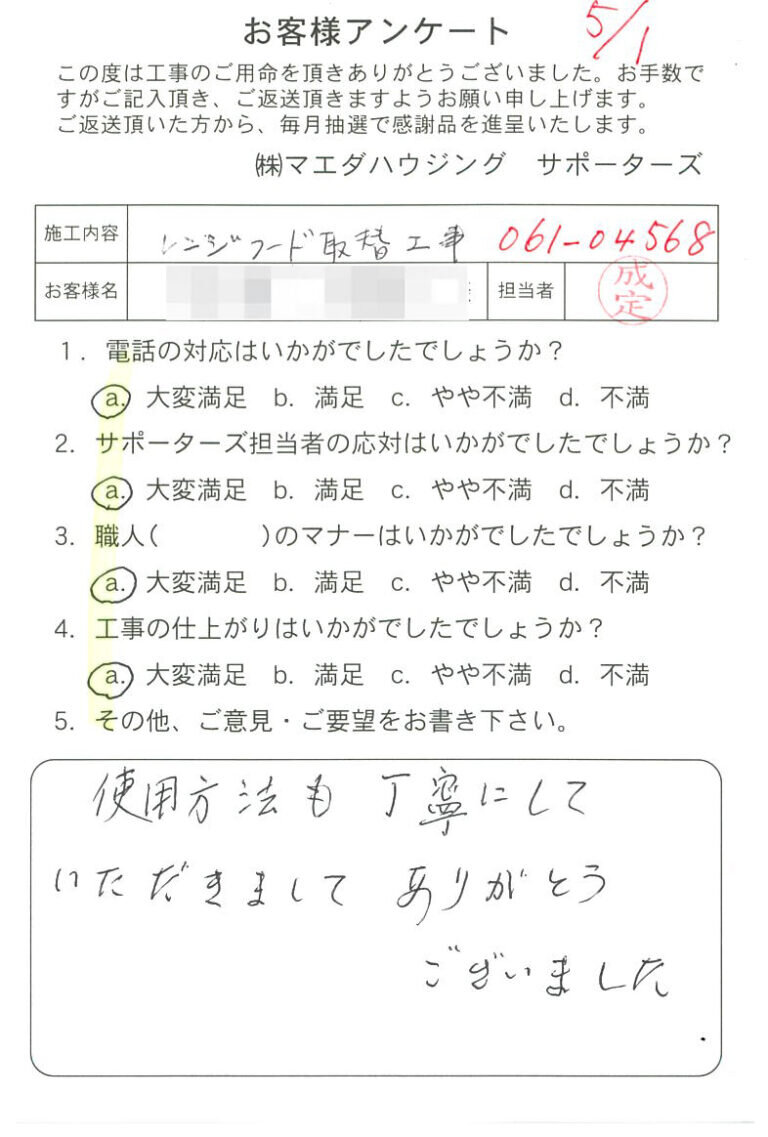 お客様アンケート 5/1
この度は工事のご用命を頂きありがとうございました。お手数で
すがご記入頂き、ご返送頂きますようお願い申し上げます。
ご返送頂いた方から、毎月抽選で感謝品を進呈いたします。
㈱マエダハウジング サポーターズ
施工内容 レンジフード取替工事 061-04568
お客様名 様 担当者 成定
1. 電話の対応はいかがでしたでしょうか？
a. 大変満足 b. 満足 c. やや不満 d. 不満
2. サポーターズ担当者の応対はいかがでしたでしょうか？
a. 大変満足 b. 満足 c. やや不満 d. 不満
3. 職人( )のマナーはいかがでしたでしょうか？
a. 大変満足 b. 満足 c. やや不満 d. 不満
4. 工事の仕上がりはいかがでしたでしょうか？
a. 大変満足 b. 満足 c. やや不満 d. 不満
5. その他、ご意見・ご要望をお書き下さい。
使用方法も 丁寧にして
いただきまして ありがとう
ございました
.